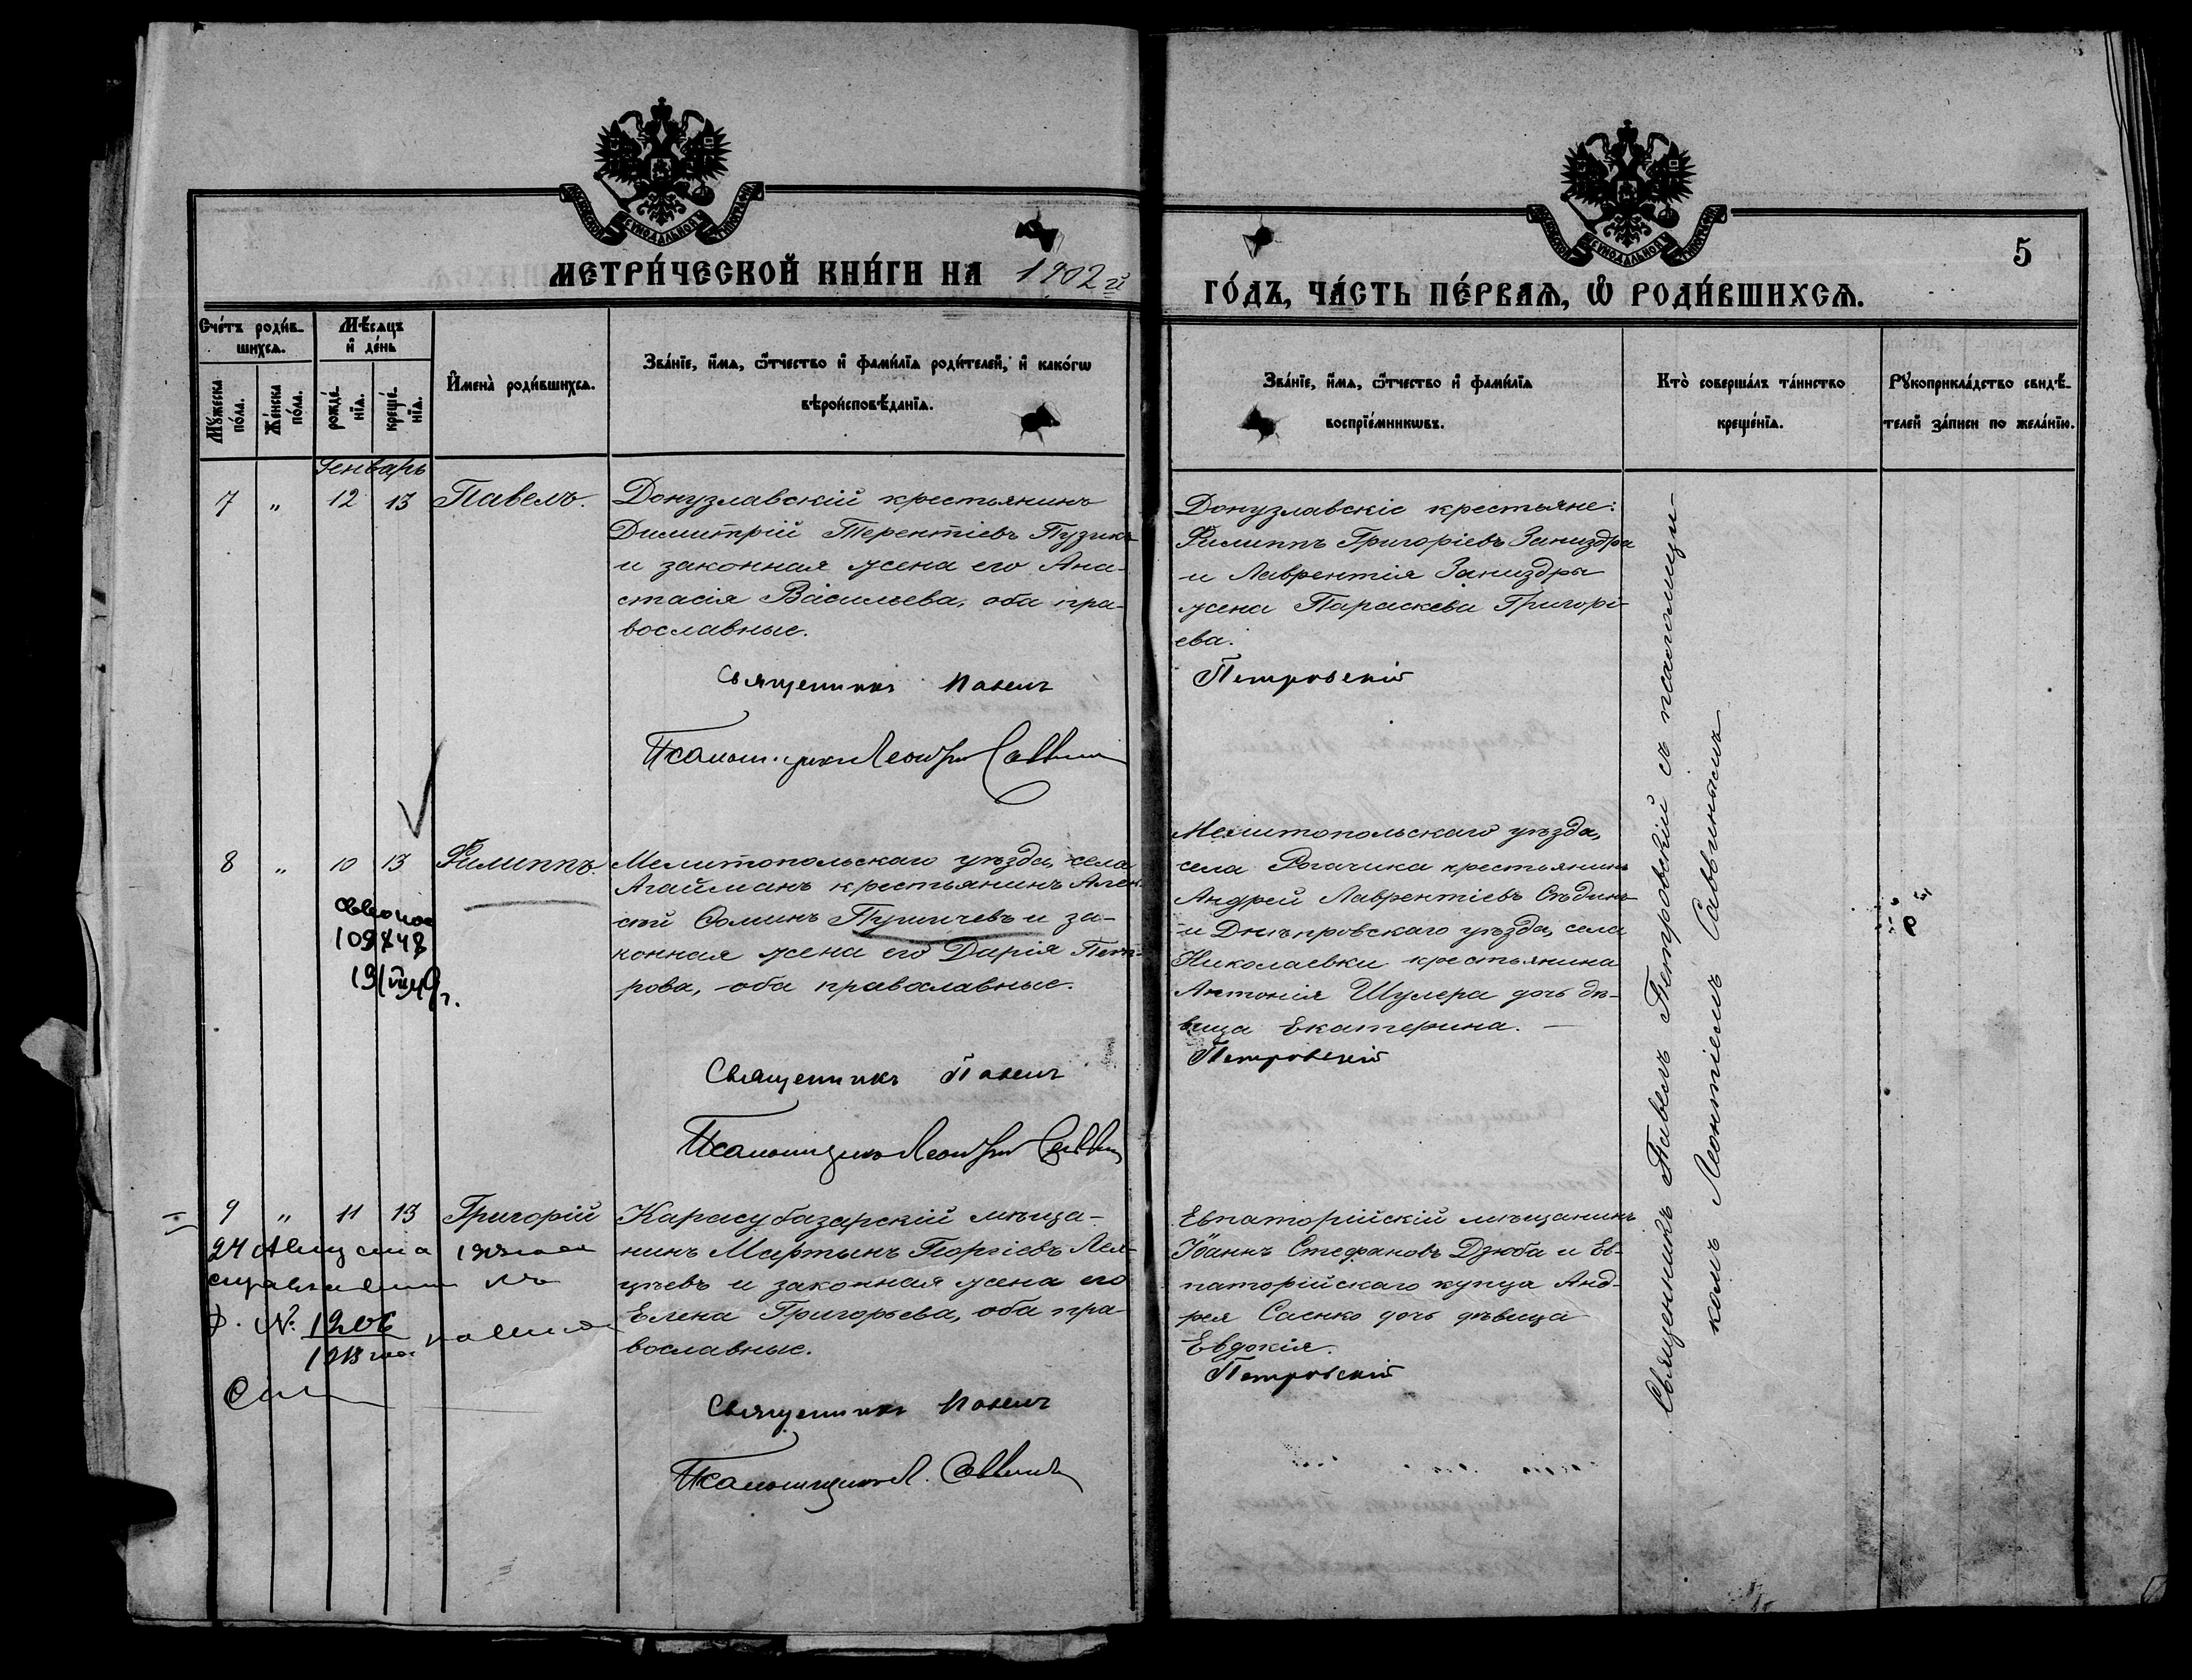 МЕТРИ́ЧЕСКОЙ КНИ́ГИ НА 1902 й
ГО́ДЪ, ЧА́СТЬ ПЕ́РВАѦ, Ѡ҆ РОДИ́ВШИХСѦ.
5
Сче́тъ роди́в-
шихсѧ.
Мѣ́сѧцъ
и҆ де́нь
Мꙋ́жеска
по́ла.
Же́нска
по́ла.
рожде́-
нїѧ.
креще́-
нїѧ.
И҆мена̀ роди́вшихсѧ.
Зва́нїе, и҆́мѧ, ѻ҆́тчество и҆ фамѝлїѧ роди́телей, и҆ како́гѡ
вѣроисповѣ́данїѧ.
Зва́нїе, и҆́мѧ, ѻ҆́тчество и҆ фамѝлїѧ
воспрїе́мникѡвъ.
Кто̀ соверша́лъ та́инство
креще́нїѧ.
Рꙋкоприкла́дство свидѣ́-
телей за́писи по жела́нїю.
Генварь
7 " 12 13 Павелъ.
Донузлавскій крестьянинъ
Димитрій Терентіевъ Пузикъ
и законная жена его Ана-
стасія Васильева, оба пра-
вославные.
Священникъ Павелъ
Псаломщикъ Леонтій Саввин
Донузлавскіе крестьяне:
Филиппъ Григоріевъ Заниздра
и Лаврентія Заниздры
жена Параскева Григорі-
ева.
Петровскій
8 " 10 13 Филиппъ.
Мелитопольскаго уѣзда, села
Агайманъ крестьянинъ Алек-
сѣй Ѳоминъ Пугичевъ и за-
конная жена его Дарія Пет-
рова, оба православные.
Священникъ Павелъ
Псаломщикъ Леонтій Саввин
Мелитопольскаго уѣзда,
села Рогачика крестьянинъ
Андрей Лаврентіевъ Сѣдинъ
и Днѣпровскаго уѣзда, села
Николаевки крестьянина
Антонія Шулера дочь дѣ-
вица Екатерина. —
Петровскій
9 " 11 13 Григорій
24 Августа
№ 1206
Карасубазарскій мѣща-
нинъ Мартынъ Георгіевъ Лея-
цѣевъ и законная жена его
Елена Григорьева, оба пра-
вославные.
Священникъ Павелъ
Псаломщикъ Л. Саввинъ
Евпаторійскій мѣщанинъ
Іоаннъ Стефановъ Дзюба и Ев-
паторійскаго купца Анд-
рея Саенко дочь дѣвица
Евдокія.
Петровскій
Священникъ Павелъ Петровскій съ псаломщи-
комъ Леонтіемъ Саввинымъ